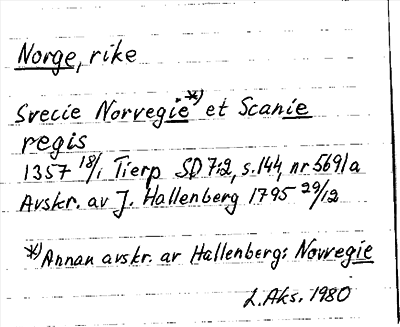 Norge, rike
Svecie Norvegie *) et Scanie
regis
1357 18/1 Tierp SD 7:2, s. 144, nr 5691a
Avskr. av J. Hallenberg 1795 29/12
*) Annan avskr. av Hallenberg: Novvegie
L. Aks. 1980